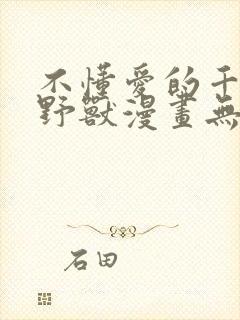 不懂愛的千
野獸漫畫無
石田